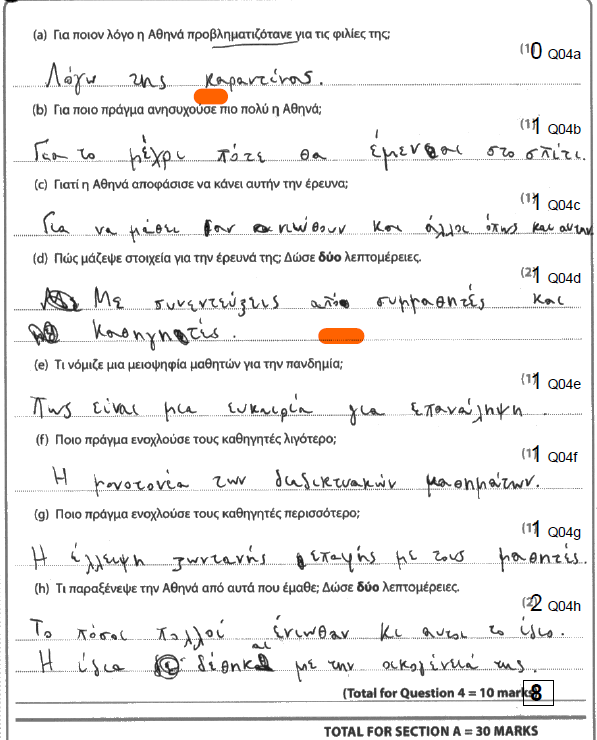 (a) Για ποιον λόγο η Αθηνά προβληματιζότανε για τις φιλίες της;
(1) 0 Q04a
Λόγω της καραντίνας.
(b) Για ποιο πράγμα ανησυχούσε πιο πολύ η Αθηνά;
(1) 1 Q04b
Για το μέχρι πότε θα έμενε στο σπίτι.
(c) Γιατί η Αθηνά αποφάσισε να κάνει αυτήν την έρευνα;
(1) 1 Q04c
Για να μάθει αν νιώθουν και άλλοι όπως και αυτήν
(d) Πώς μάζεψε στοιχεία για την έρευνά της; Δώσε δύο λεπτομέρειες.
(2) 1 Q04d
Με συνεντεύξεις από συμμαθητές και
καθηγητές.
(e) Τι νόμιζε μια μειοψηφία μαθητών για την πανδημία;
(1) 1 Q04e
Πως είναι μια ευκαιρία για επανάληψη.
(f) Ποιο πράγμα ενοχλούσε τους καθηγητές λιγότερο;
(1) 1 Q04f
Η μονοτονία των διαδικτυακών μαθημάτων.
(g) Ποιο πράγμα ενοχλούσε τους καθηγητές περισσότερο;
(1) 1 Q04g
Η έλλειψη ζωντανής επαφής με τους μαθητές.
(h) Τι παραξένεψε την Αθηνά από αυτά που έμαθε; Δώσε δύο λεπτομέρειες.
(2) 2 Q04h
Το πόσοι πολλοί ένιωθαν κι αυτοί το ίδιο.
Η ίδια με την οικογένειά της.
(Total for Question 4 = 10 marks 8
TOTAL FOR SECTION A = 30 MARKS